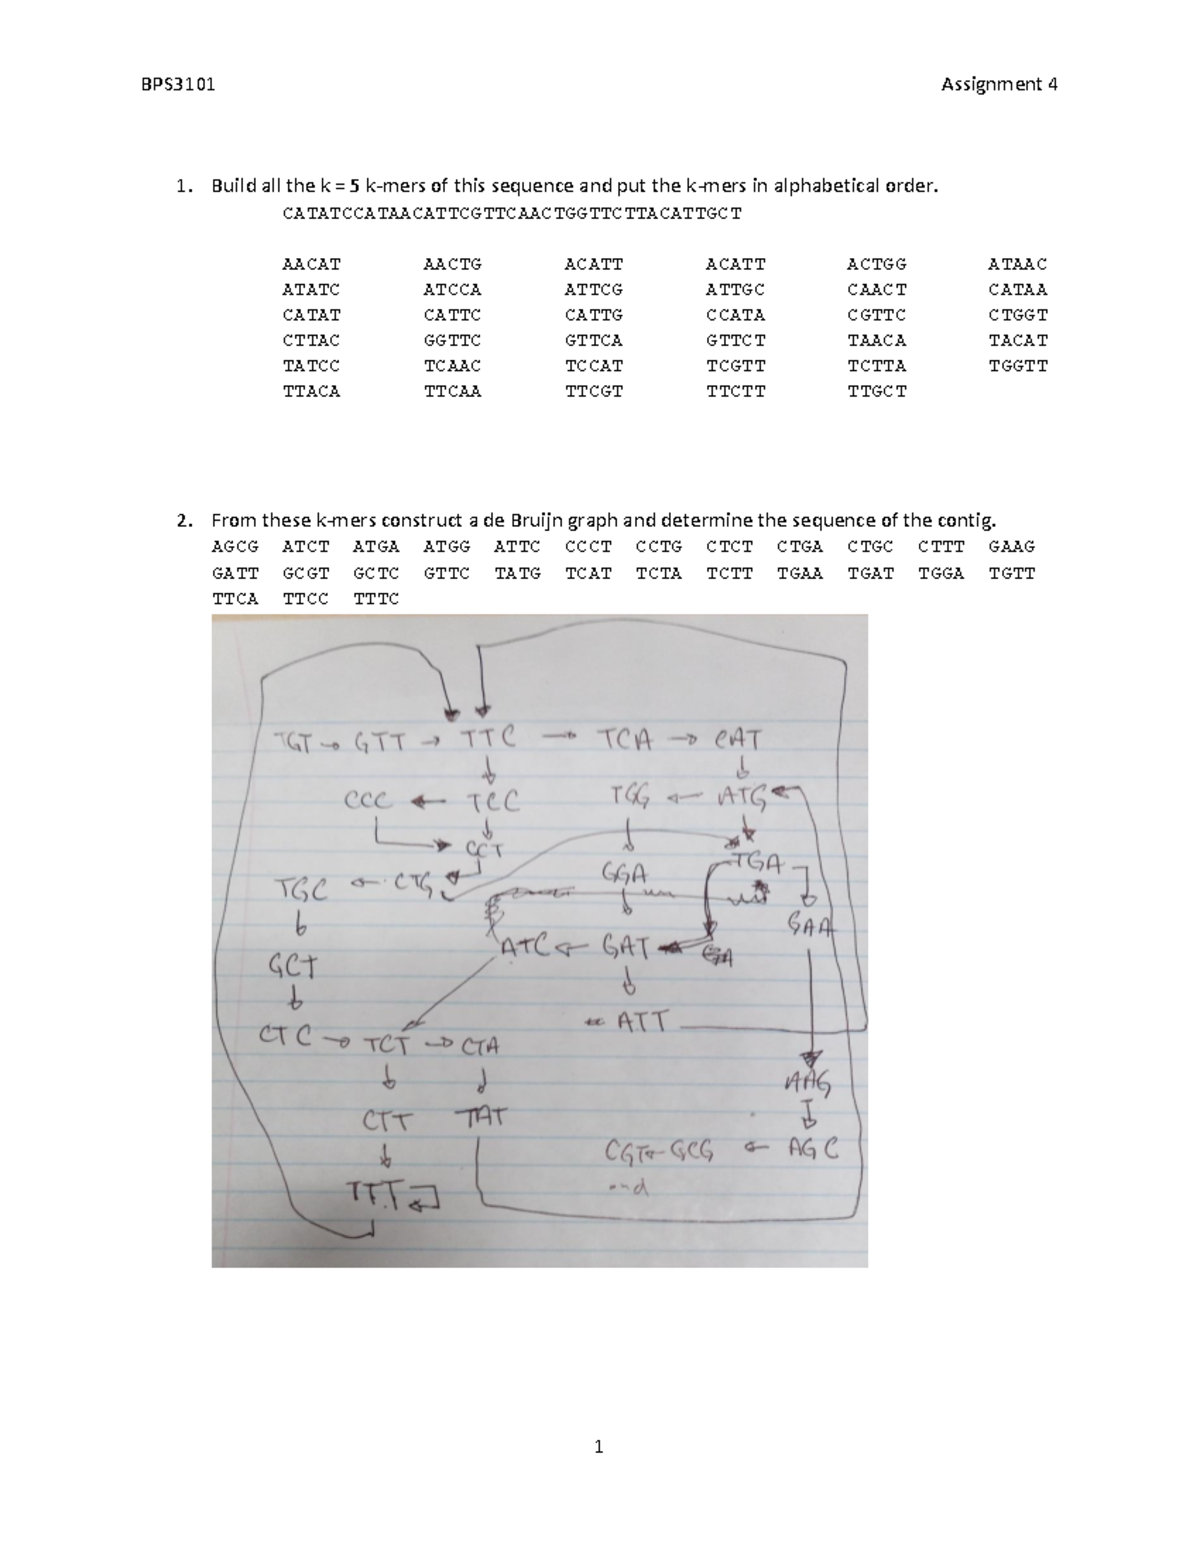 BPS3101 Assignment 4
1. Build all the k = 5 k-mers of this sequence and put the k-mers in alphabetical order.
CATATCCATAACATTCGTTCAACTGGTTCTTACATTGCT
AACAT AACTG ACATT ACATT ACTGG ATAAC
ATATC ATCCA ATTCG ATTGC CAACT CATAA
CATAT CATTC CATTG CCATA CGTTC CTGGT
CTTAC GGTTC GTTCA GTTCT TAACA TACAT
TATCC TCAAC TCCAT TCGTT TCTTA TGGTT
TTACA TTCAA TTCGT TTCTT TTGCT
2. From these k-mers construct a de Bruijn graph and determine the sequence of the contig.
AGCG ATCT ATGA ATGG ATTC CCCT CCTG CTCT CTGA CTGC CTTT GAAG
GATT GCGT GCTC GTTC TATG TCAT TCTA TCTT TGAA TGAT TGGA TGTT
TTCA TTCC TTTC
TGT → GTT → TTC → TCA → CAT
CCC ← TCC TGG ← ATG
CCT TGA
TGC ← CTG GGA
GAA
ATC ← GAT
GCT
ATT
CTC → TCT → CTA
AAG
CTT TAT
CGT ← GCG ← AGC
TTT end
1